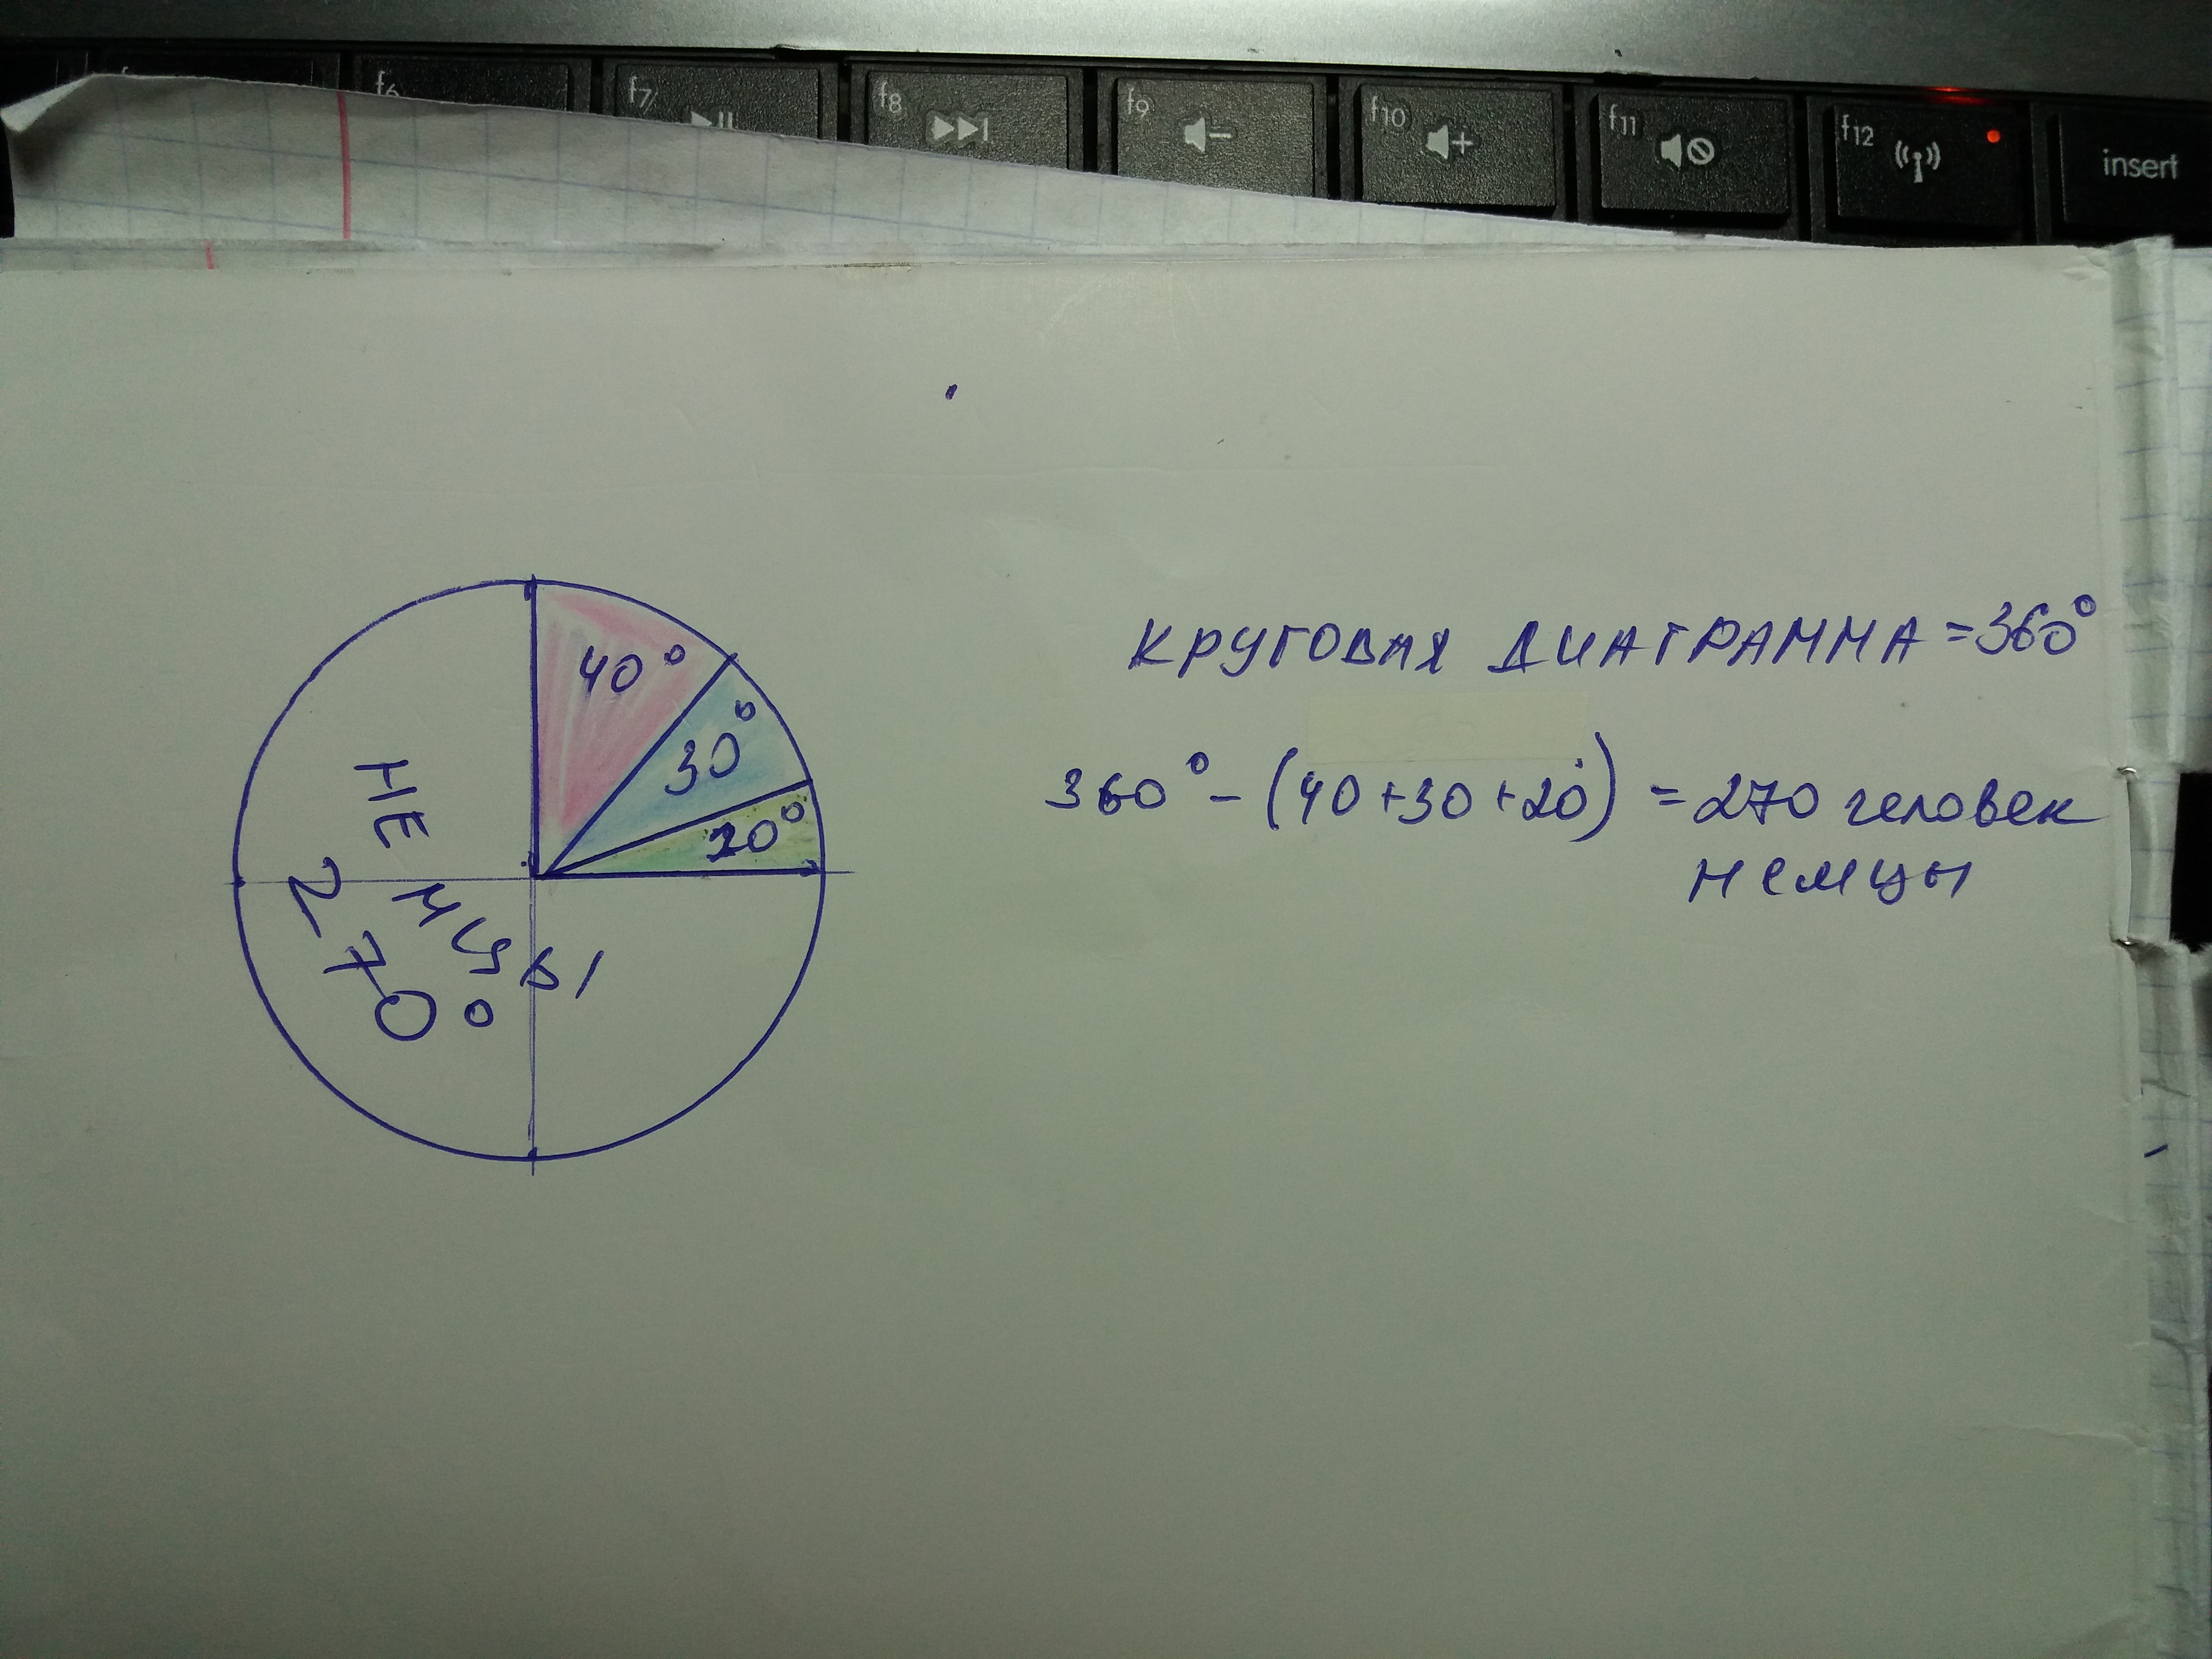 f6
f7
f8
f9
f10
f11
f12
insert
40°
30°
20°
НЕМЦЫ
270°
КРУГОВАЯ ДИАГРАММА = 360°
360° - (40 + 30 + 20) = 270 человек
немцы